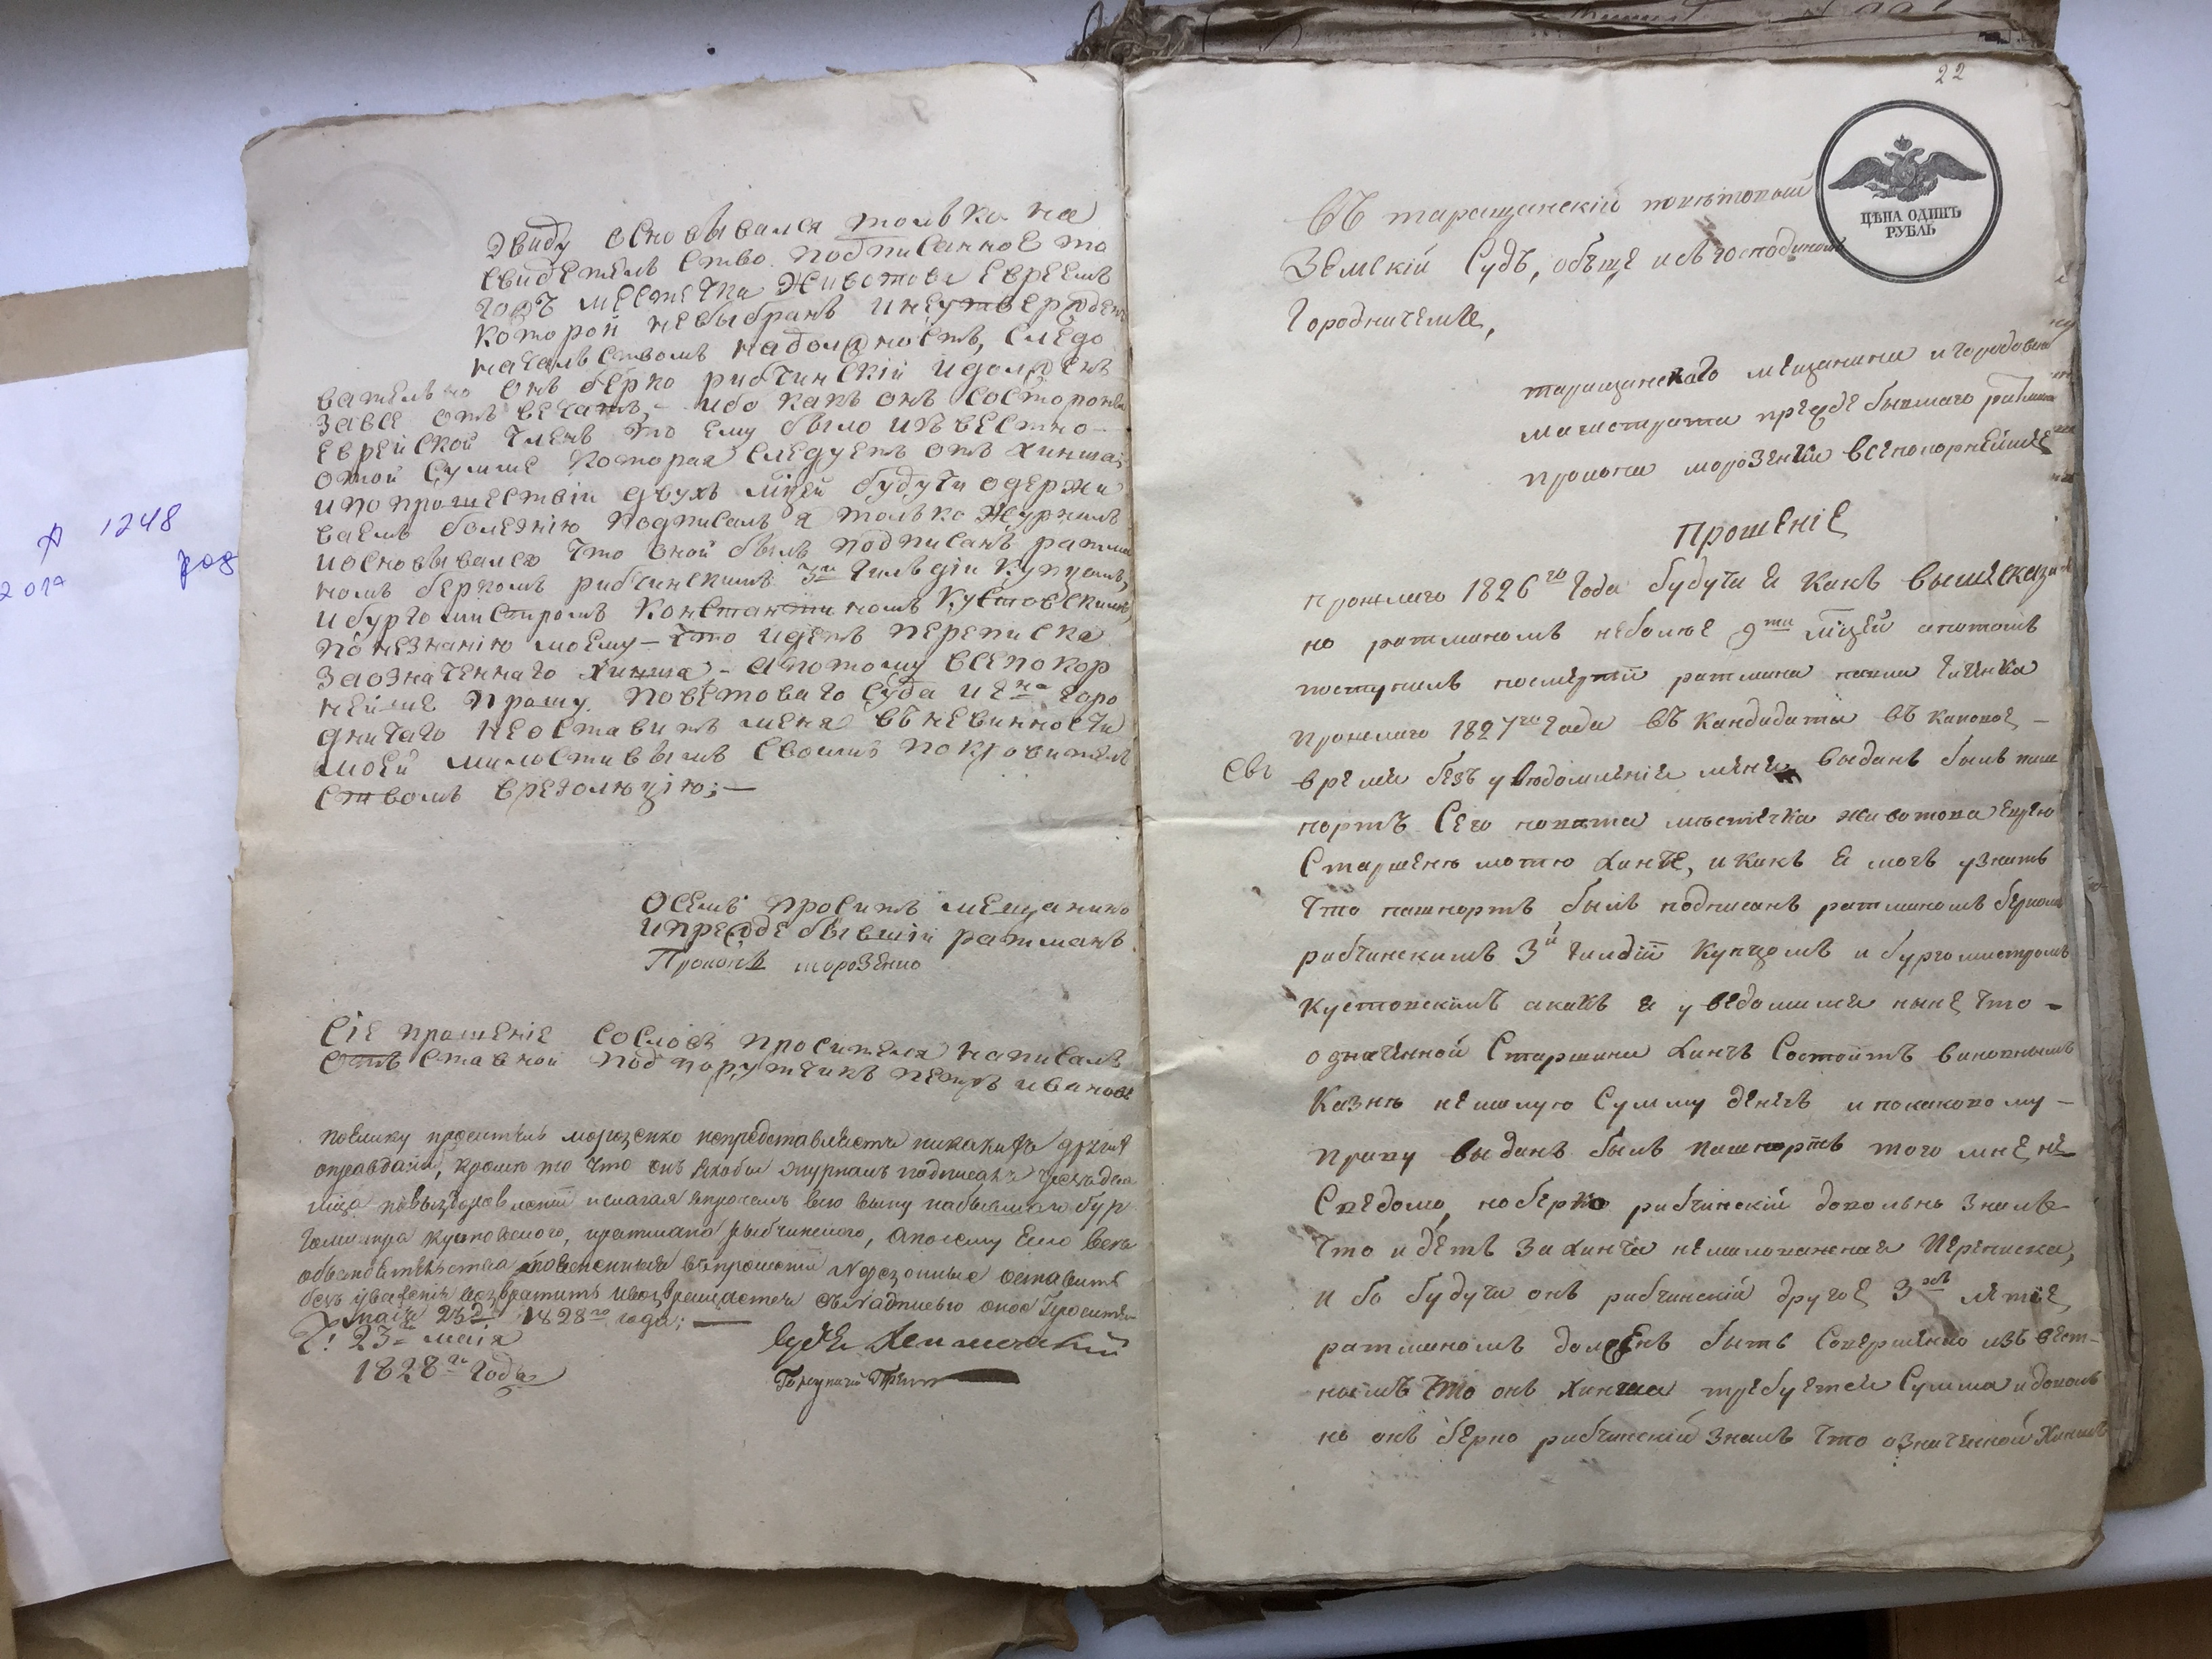 эвиду основывался только на
свидетельство подписанное то
годъ местечка Животова евреемъ
которой невыбранъ инеутвержденъ
начальствомъ надолжность, следо
вательно онъ берко рибчинскій идолженъ
завсе отвечать, – ибо какъ онъ состороны
еврейской членъ то ему было известно –
отой сумме которая следуетъ отъ Хинша;
ипопрошествіи двухъ мцей будучи одержи
ваемъ болезнію подписалъ я только журналъ
иосновывался что оной былъ подписанъ ратма
номъ беркомъ рибчинскимъ 3й гильдіи купцомъ,
ибургомистромъ Константиномъ Кустовскимъ
понезнанію моему – что идетъ переписка
заозначеннаго Хинша, – апотому всепокор
нейше прошу поветоваго суда и г на горо
дничаго неоставить меня въневинности
моей милостивымъ своимъ покровитель
ствомъ врезолюцію; –
Осемъ проситъ мещанинъ
ипрежде бывшій ратманъ
Прокопъ морозенко
Сіе прошеніе сословъ просителя написалъ
отъставной подпорутчикъ петръ ивановъ
поелику проситель морозенко непредставляетъ никакихъ другихъ
оправданій, кроме то что онъ якобы журналъ подписалъ
повыздоровленіи ислагая впрочемъ всю вину набывшаго бур
гомистра кустовского, иратмана рыбчинского, апосему Его все
обстоятельства въпрошеніи оставить
безъ уваженія возвратить ивозвращается съ надписью
мая 23 д. 1828го года; –
Ч: 23 маія
1828го года
Судья
22
ЦѢНА ОДИНЪ
РУБЛЬ
Въ таращанскій поветовый
Земскій Судъ, объще исъгосподиномъ
Городничемъ,
таращанскаго мещанина игородового
магистрата прежде бывшаго ратмана
прокопа морозенки всепокорнейшее
Прошеніе
прошлаго 1826го года будучи я какъ вышесказа
но ратманомъ неболее 9ти мцей апотомъ
поступилъ посмертіи ратмана
прошлаго 1827го года въ кандидаты въ каковое –
время безъ уведомленія меня выданъ былъ паш
портъ Сего повета местечка животова еврею
Старшему мотю Хинче, икакъ я могъ узнать
что пашпортъ былъ подписанъ ратманомъ беркомъ
рибчинскимъ 3й гилдіи купцомъ и бургомистромъ
кустовскимъ акакъ я уведомился ныне что –
означенной Старшина Хинчъ Состоитъ виновнымъ
Казне немалую Сумму денегъ ипокаковому –
праву выданъ былъ пашпортъ того мне не
Сведомо, ноберко рибчинскій довольно зналъ
что идетъ за хинча немаловажная переписка,
ибо будучи онъ рибчинскій другое 3хъ летіе
ратманомъ долженъ быть Совершенно извест–
нымъ что онъ хинша требуется Сумма идоволь
но онъ берко рибчинскій зналъ что означенной Хиншъ
1248